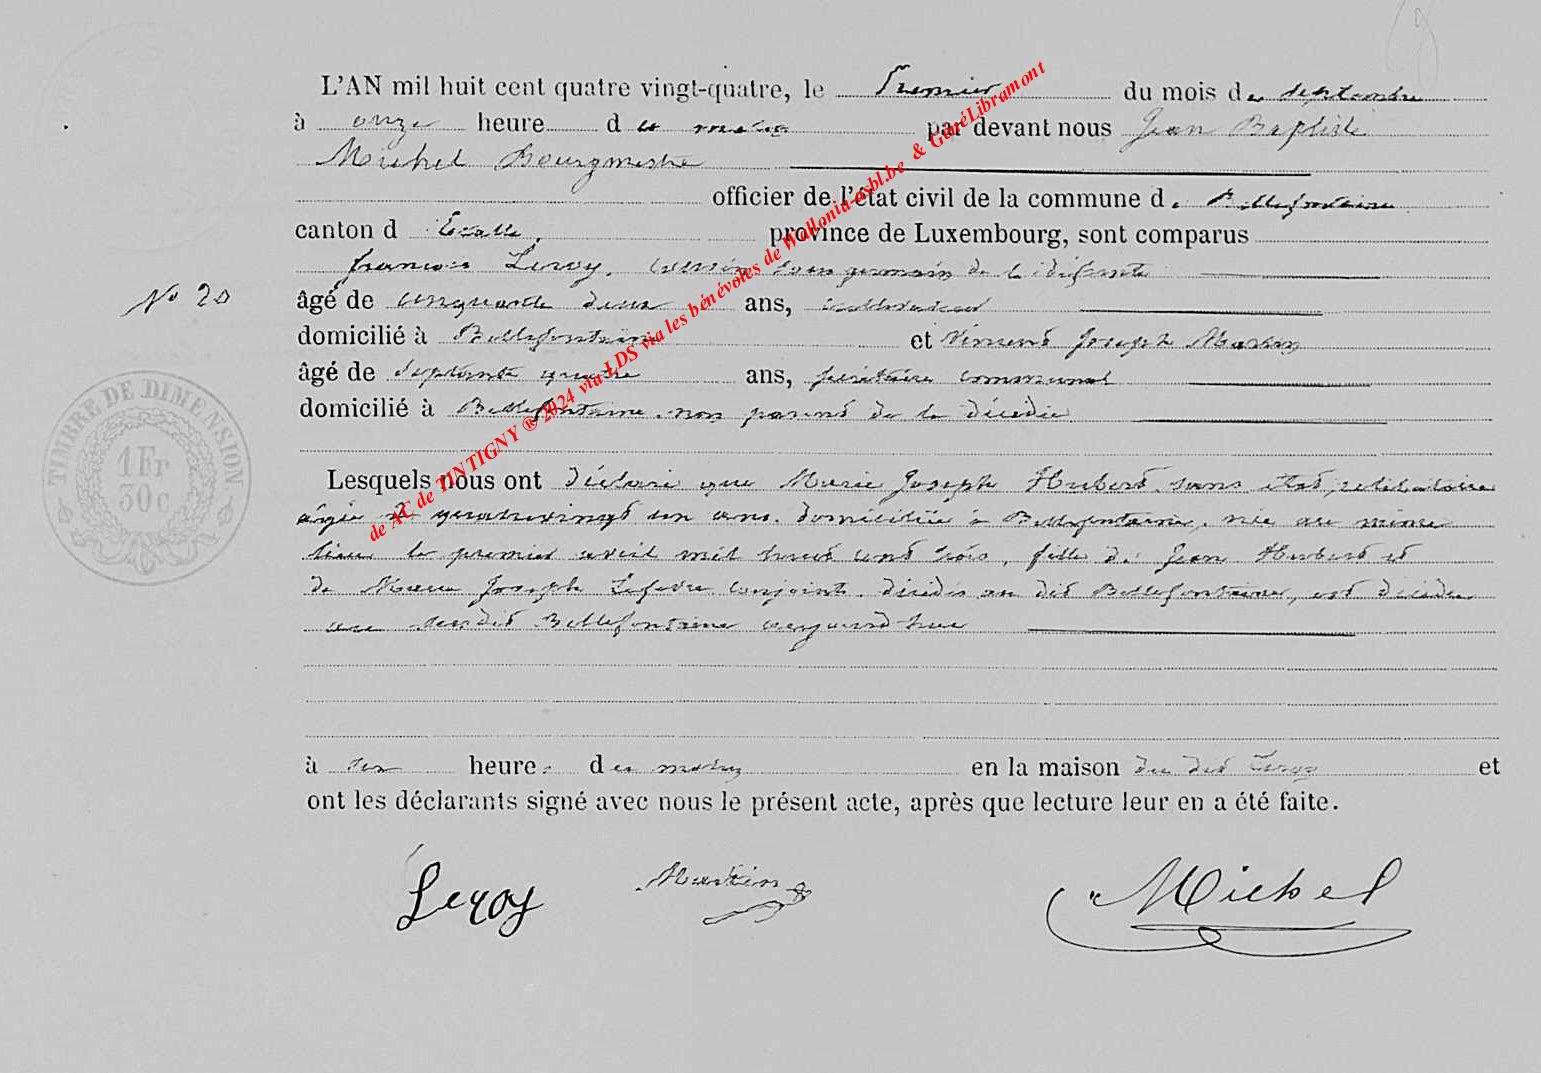 L'AN mil huit cent quatre vingt-quatre, le Premier du mois de septembre
à onze heure du matin par devant nous Jean Baptiste
Michel Bourgmestre
officier de l'état civil de la commune de Bellefontaine
canton d'Etalle, province de Luxembourg, sont comparus
françois Leroy, cousin germain de la défunte
N° 20
âgé de cinquante deux ans, cultivateur
domicilié à Bellefontaine et Vincent Joseph Martin
âgé de septante quatre ans, secrétaire communal
domicilié à Bellefontaine, non parent de la décédée
Lesquels nous ont déclaré que Marie Joseph Hubert, sans état, célibataire
âgée de quatrevingt un ans, domiciliée à Bellefontaine, née au même
lieu le premier avril mil huit cent trois, fille de Jean Hubert et
de Marie Joseph Lefevre conjoints, décédés au dit Bellefontaine, est décédée
au susdit Bellefontaine aujourd'hui
à six heure. du matin en la maison du dit Leroy et
ont les déclarants signé avec nous le présent acte, après que lecture leur en a été faite.
Leroy Martin Michel
TIMBRE DE DIMENSION
1 Fr
30 c
de AC de TINTIGNY ® 2024 via LDS via les bénévoles de Wallonia-asbl.be & GénéLibramont